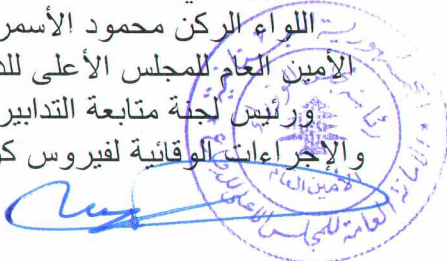 اللواء الركن محمود الأسمر
الأمين العام للمجلس الأعلى للد
ورئيس لجنة متابعة التدابير
والإجراءات الوقائية لفيروس كو
الأمين العام
الأمانة العامة للمجلس الأعلى للدفاع